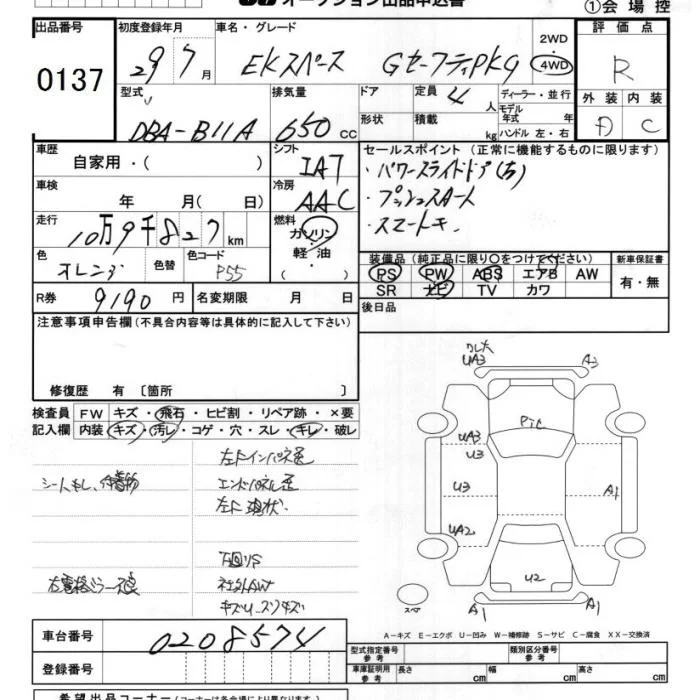 オークション出品申込書
①会場控
出品番号 初度登録年月 車名・グレード 評価点
0137 29 7月 EKスペース GセーフティPKG 2WD・4WD R
型式 排気量 ドア 定員 ディーラー・並行 外装 内装
DBA-B11A 650cc 4人 モデル年式 年 D C
形状 積載 kg ハンドル 左・右
車歴 シフト セールスポイント(正常に機能するものに限ります)
自家用・( ) IAT ・パワースライドドア(右)
車検 冷房 ・プッシュスタート
年 月(日) AAC ・スマートキー
走行 燃料
10万9千827km ガソリン・軽油・( )
色 色替 色コード 装備品(純正品に限り○をつけてください) 新車保証書
オレンジ P55 PS PW ABS エアB AW 有・無
SR ナビ TV カワ
R券 9190円 名変期限 月 日 後日品
注意事項申告欄(不具合内容等は具体的に記入して下さい)
修復歴 有〔箇所 〕
検査員記入欄 FW キズ・飛石・ヒビ割・リペア跡・×要
内装 キズ・汚レ・コゲ・穴・スレ・キレ・破レ
左Fインパネ歪
エンドパネル歪
左F 現状
下回りS
社外AW
キズ
UA3 A3
PTC
UA3
U3
U3 A1
UA2
U2
スペア A1 A1
A-キズ E-エクボ U-凹み W-補修跡 S-サビ C-腐食 XX-交換済
車台番号 0208574
登録番号
型式指定番号 参考 類別区分番号 参考
車庫証明用 参考 長さ cm 幅 cm 高さ cm
希望出品コーナー(コーナーは各会場により異なります。)